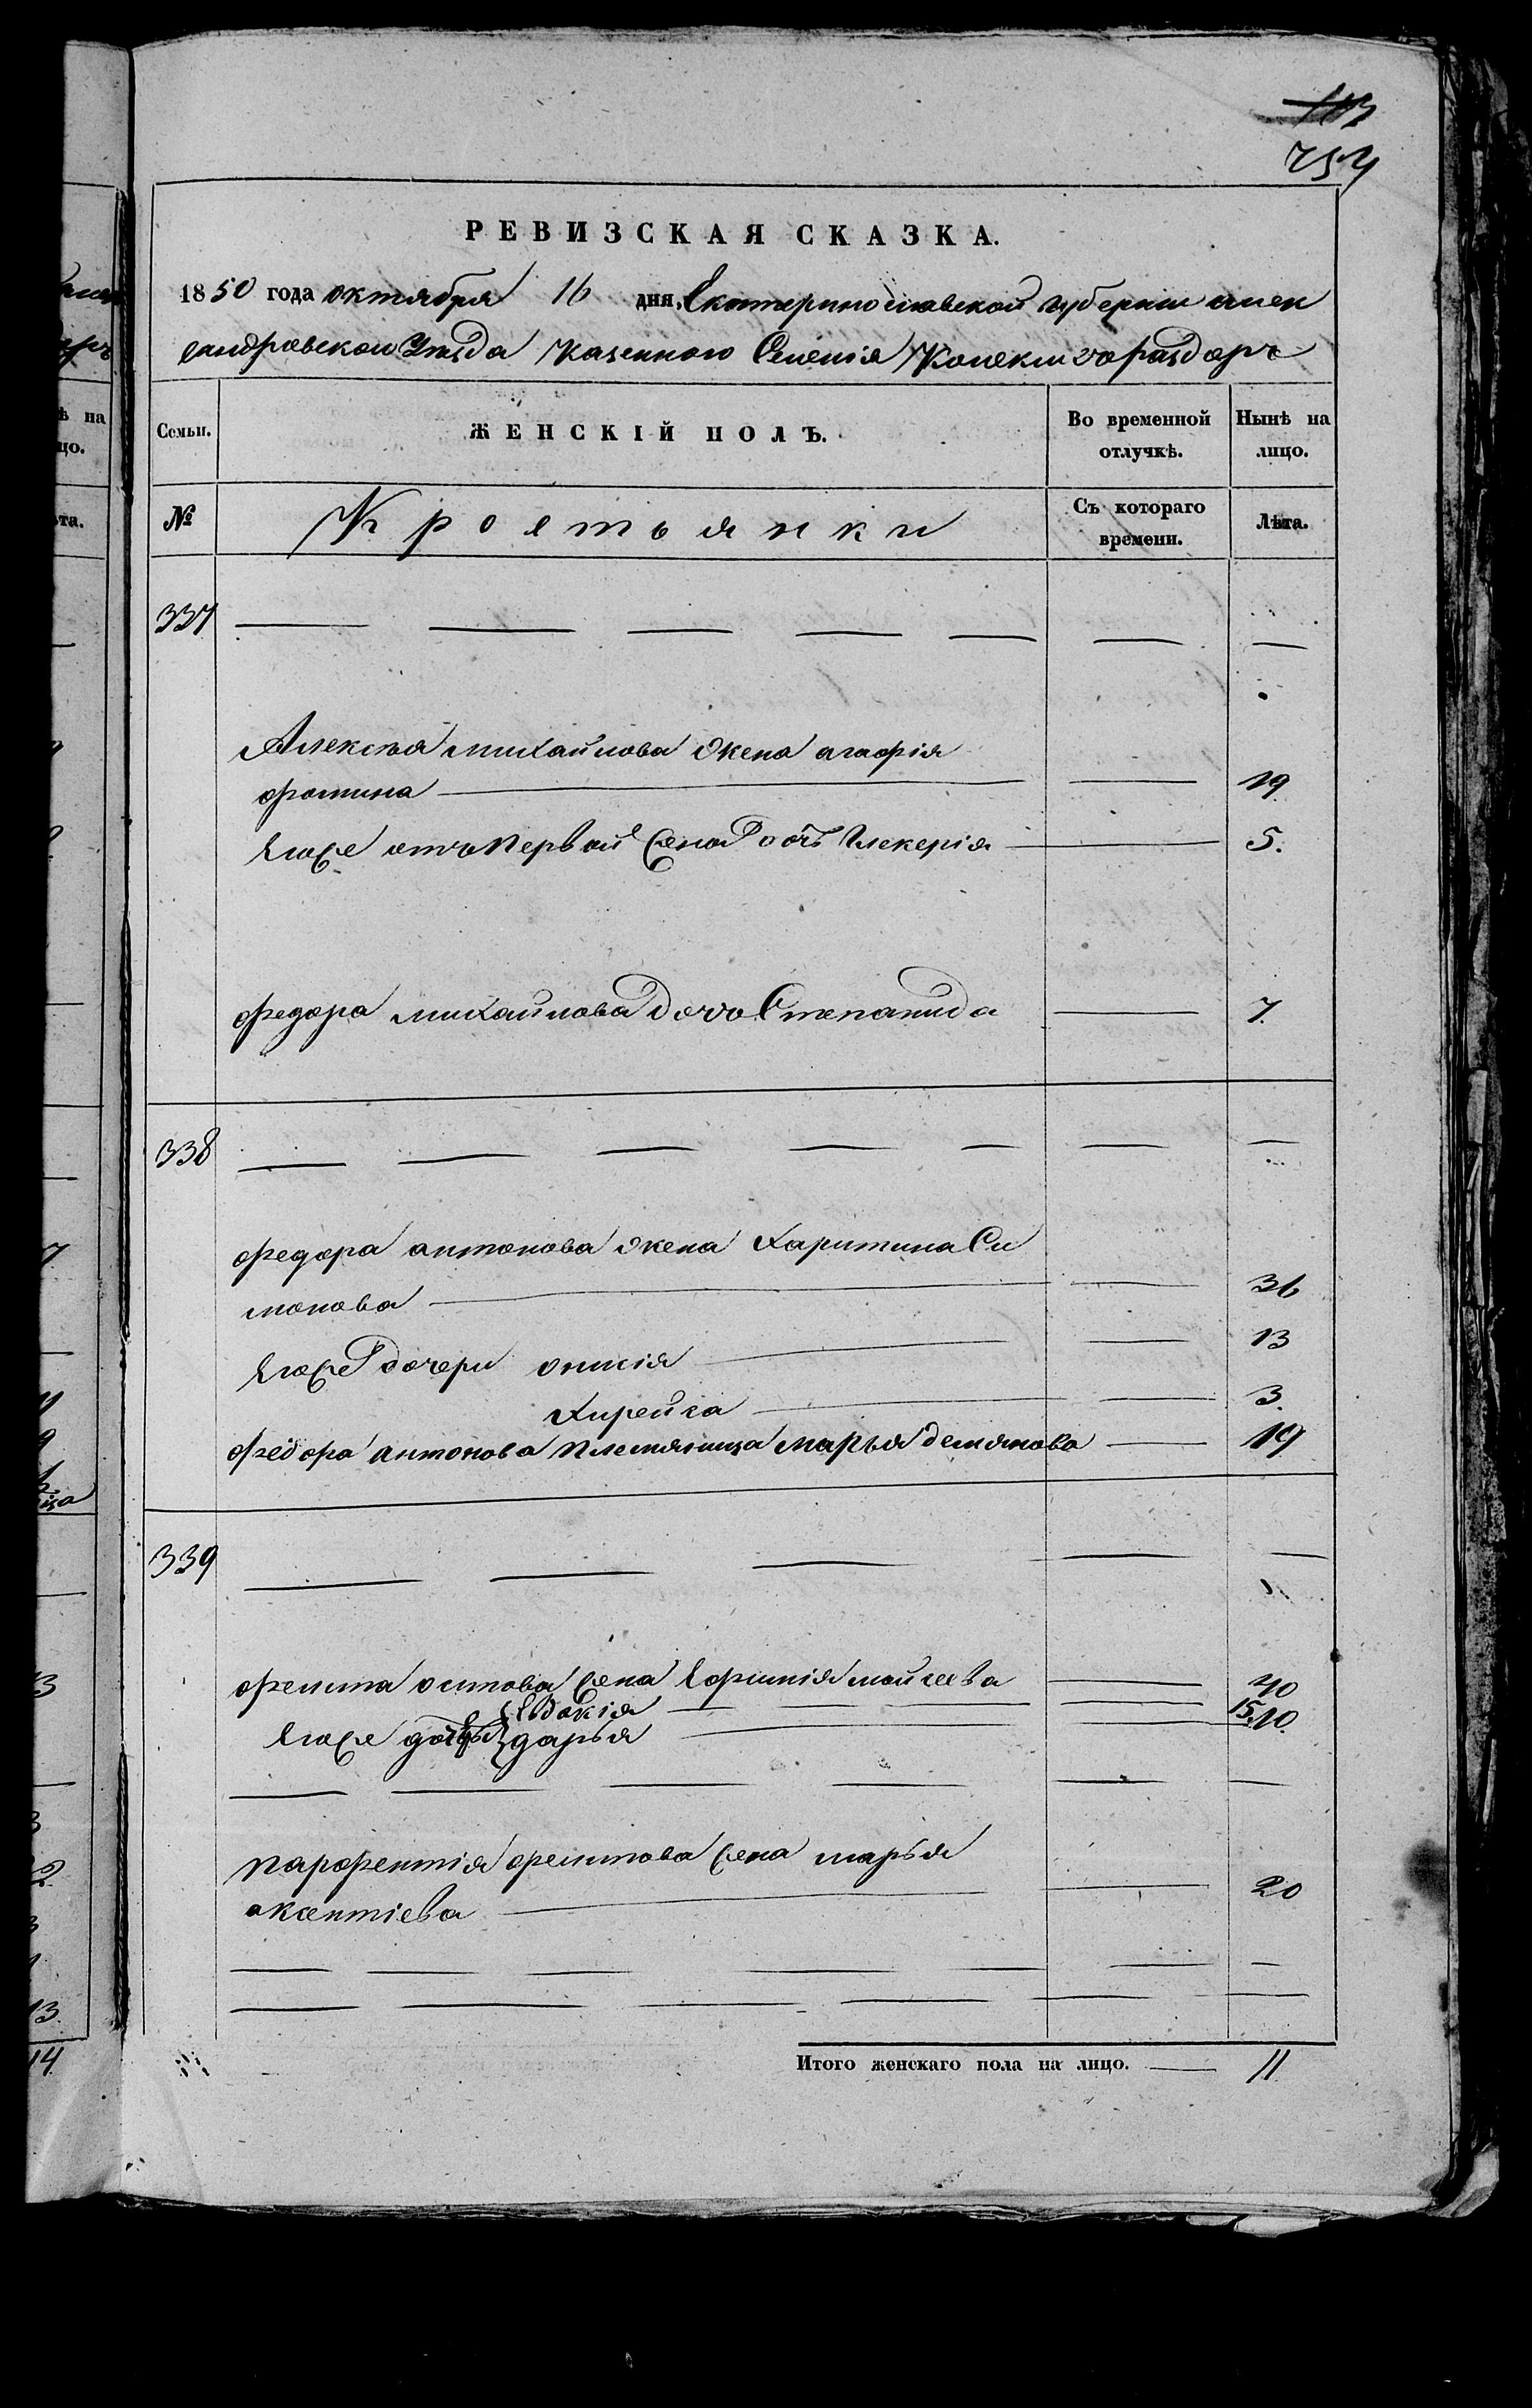 113
754
РЕВИЗСКАЯ СКАЗКА.
1850 года октября 16 дня, Екатеринославской губерніи алек
сандровскои Уѣзда казенного Селенія Конскихъ раздоръ
Семьи. ЖЕНСКІЙ ПОЛЪ. Во временной отлучкѣ. Нынѣ на лицо.
№ Крестьянки Съ котораго времени. Лѣта.
337
Алексѣя михайлова жена агафія
фомина 19
Егоже отъ первой жены дочь Гликерія 5.
федора михайлова дочь Степанида 7.
338
федора антонова жена Харитина Си
монова 36
Егоже дочери 13
3.
федора антонова племяница марья демянова 19
339
осипова жена моисеева 40
Евдокія 15.
Егоже дарья 10.
парфентія жена марья
аксентіева 20
Итого женскаго пола на лицо. 11